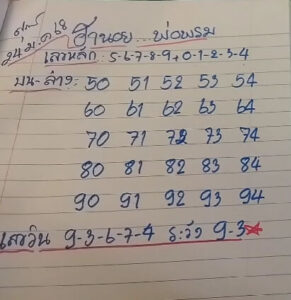 24 ม.ค 68 ฮานอย...พ่อพรม
เลขหลัก : 5-6-7-8-9 + 0-1-2-3-4
บน-ล่าง: 50 51 52 53 54
60 61 62 63 64
70 71 72 73 74
80 81 82 83 84
90 91 92 93 94
เลขวิน 9-3-6-7-4 ระวัง 9-3